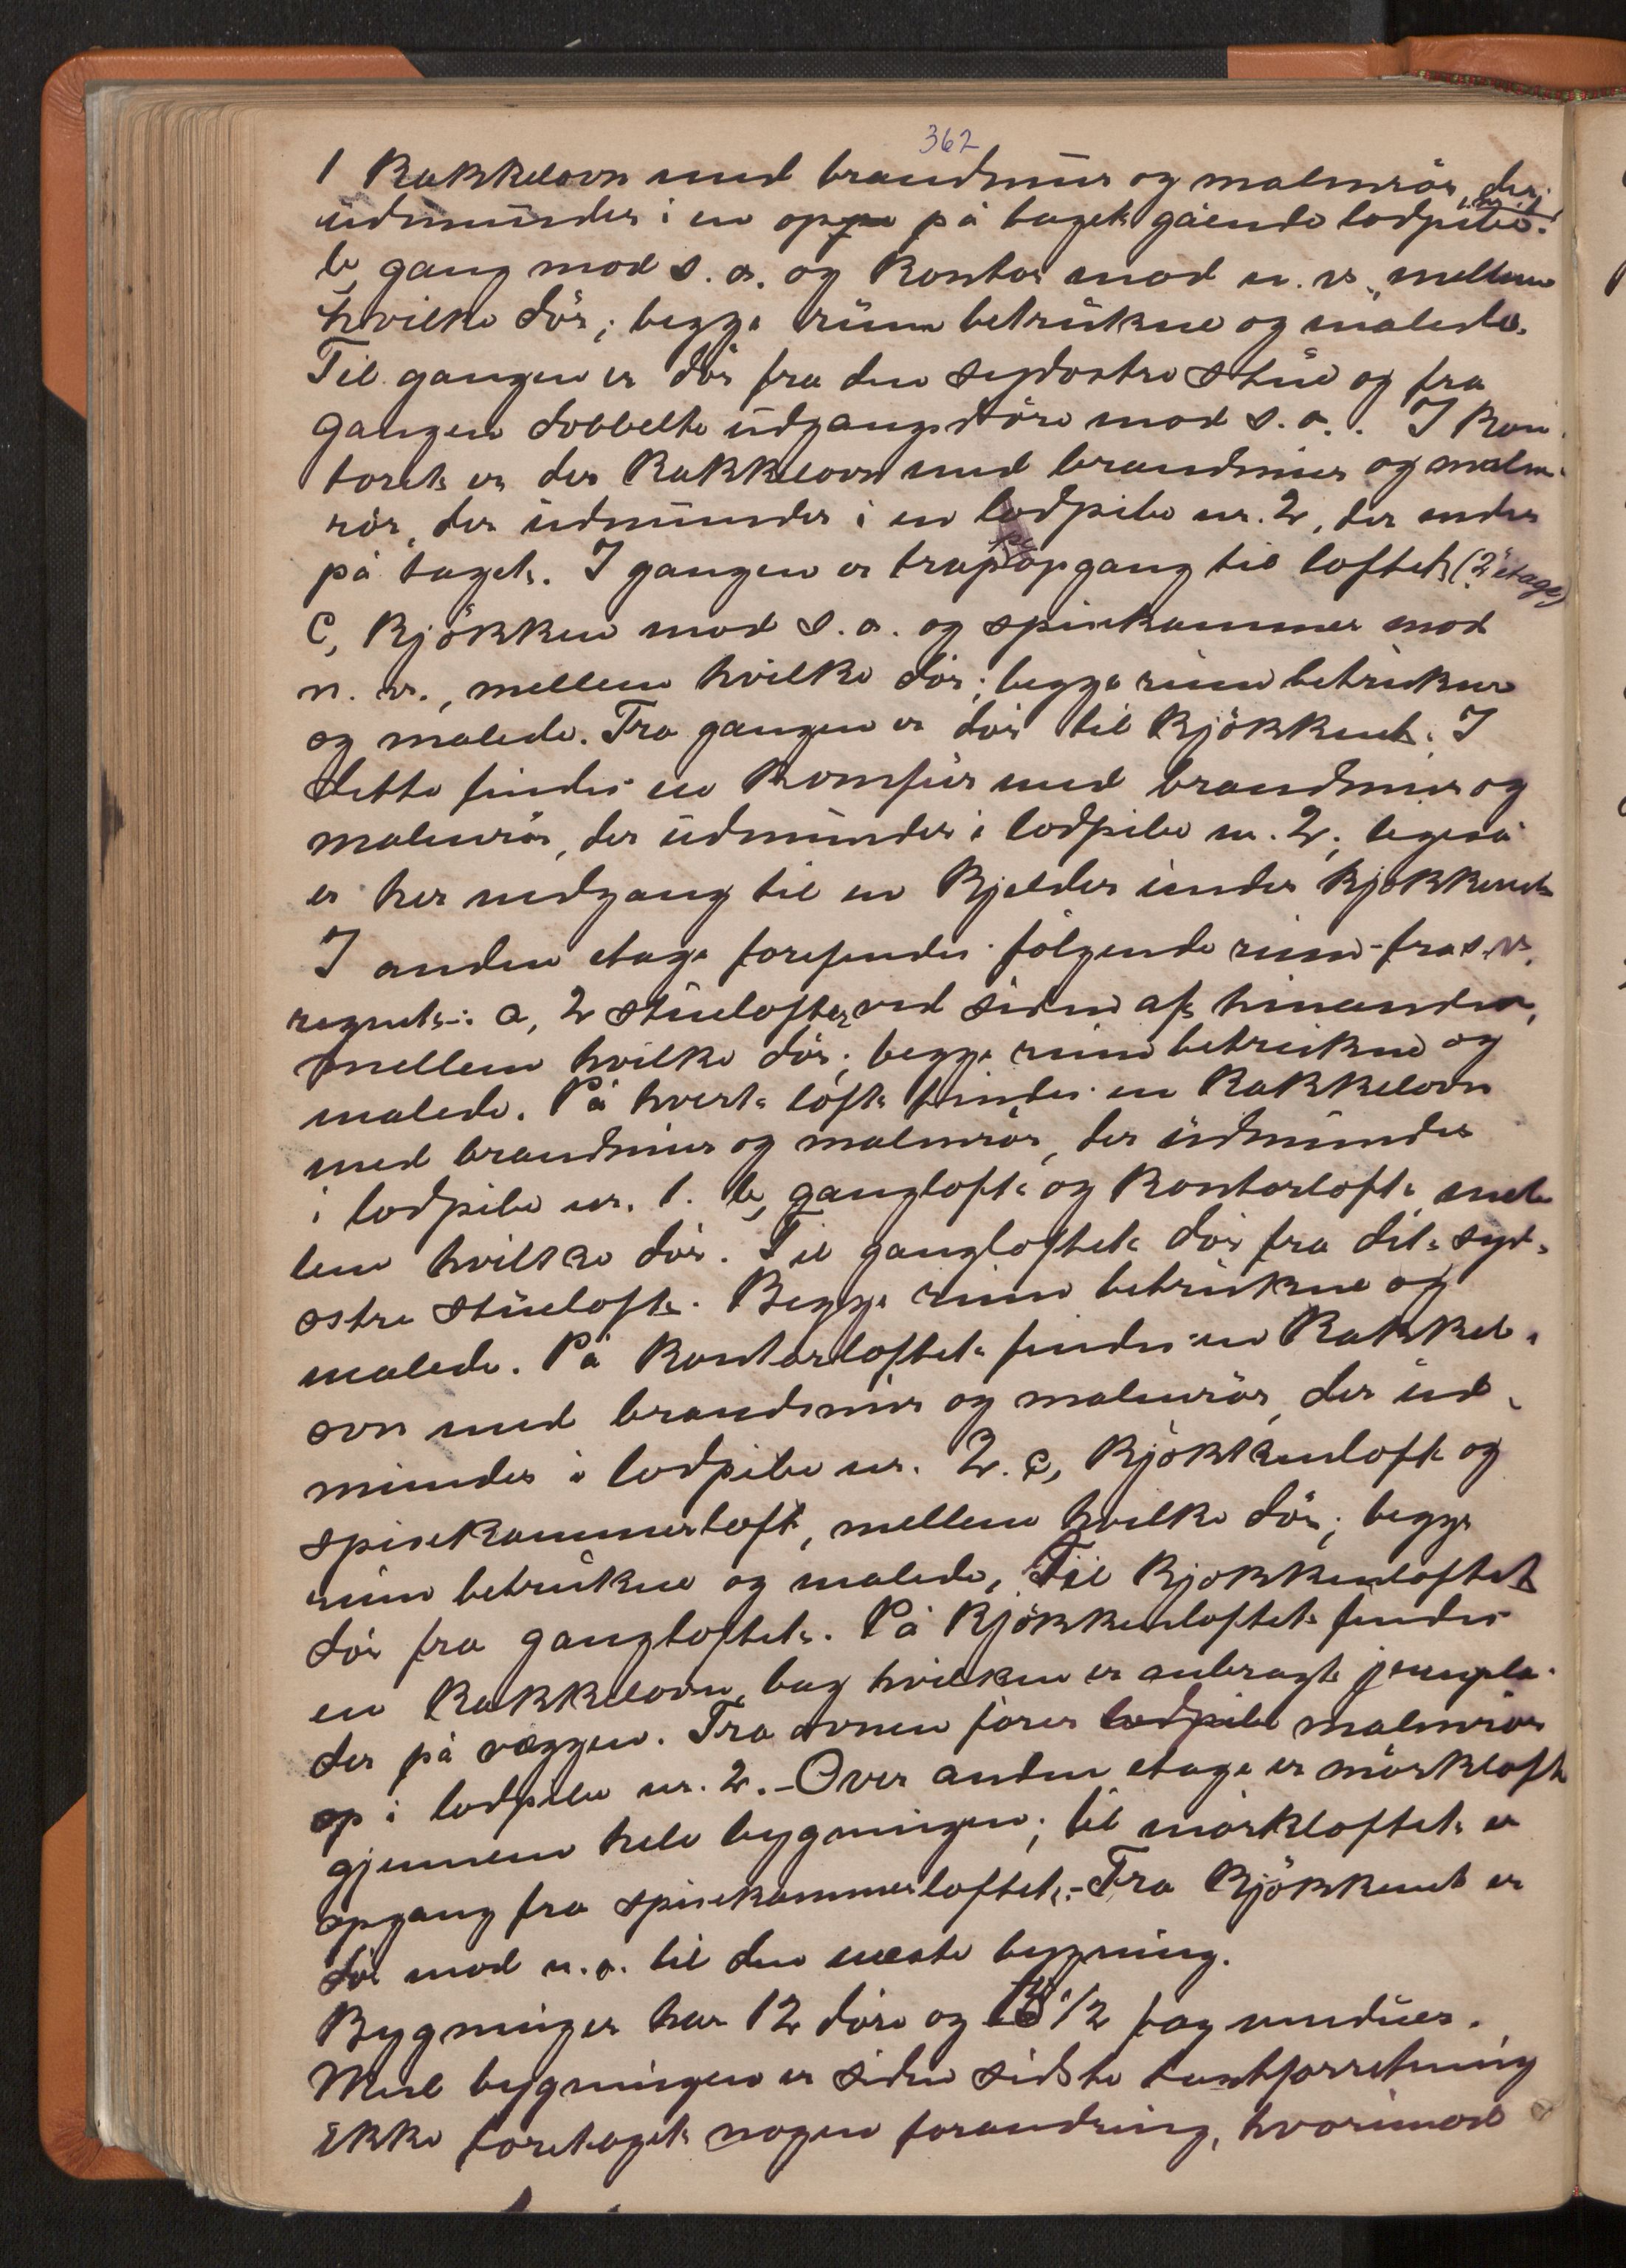 362
1 Kakkelovn med brandmur og malmrör, der
udmunder i en oppe på taget gående lodpibe. nr. 1.
b, gang mod s. o. og Kontor mod n. v., mellem
hvilke dör; begge rum betrukne og malede.
Til gangen er dör fra den sydöstre stue og fra
gangen dobbelte udgangsdöre mod s. o.. I Kon-
toret er der Kakkelovn med brandmur og malm-
rör, der udmunder i en lodpibe nr. 2, der ender
på taget. I gangen er trappeopgang til loftet (2 etage)
c, Kjökken mod s. o. og spisekammer mod
n. v., mellem hvilke dör; begge rum betrukne
og malede. Fra gangen er dör til Kjökkenet. I
dette findes en Komfur med brandmur og
malmrör, der udmunder i lodpibe nr. 2; ligeså
er her nedgang til en Kjelder under Kjökkenet
I anden etage forefindes følgende rum - fra s. v.
regnet -: a, 2 stuelofter ved siden af hinanden,
mellem hvilke dör; begge rum betrukne og
malede. På hvert loft findes en Kakkelovn
med brandmur og malmrör, der udmunder
i lodpibe nr. 1. b, gangloft og Kontorloft, mel-
lem hvilke dör. Til gangloftet dör fra det syd-
östre stueloft. Begge rum betrukne og
malede. På Kontorloftet findes en Kakkel-
ovn med brandmur og malmrör, der ud-
munder i lodpibe nr. 2. c, Kjökkenloft og
spisekammerloft, mellem hvilke dör; begge
rum betrukne og malede, Til Kjökkenloftet
dör fra gangloftet. På Kjökkenloftet findes
en Kakkelovn, bag hvilken er anbragt jernpla-
der på væggen. Fra ovnen fører lodpibe malmrör
op i lodpibe nr. 2. - Over anden etage er mörkloft
gjennem hele bygningen; til mörkloftet er
opgang fra spisekammerloftet. - Fra Kjökkenet er
dör mod n. o. til den næste bygning.
Bygningen har 12 döre og 1/2 fag vinduer.
Med bygningen er siden sidste taxtforretning
ikke foretaget nogen forandring, hvorimod